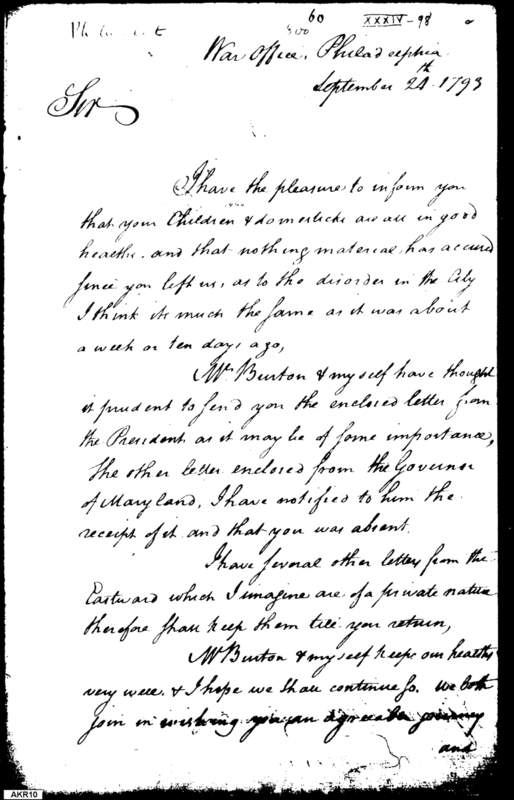 60
XXXIV - 98
War Office, Philadelphia
September 24th 1793
Sir
I have the pleasure to inform you
that your Children & domesticks are all in good
health, and that nothing material, has accured
since you left us, as to the disorder in the City
I think its much the same as it was about
a week or ten days ago,
Mr Burton & myself have thought
it prudent to send you the enclosed letter from
the President as it may be of some importance,
the other letter enclosed from the Governor
of Maryland, I have notified to him the
receipt of it and that you was absent.
I have several other letters from the
Eastward which I imagine are of a private nature
therefore shall keep them till you return,
Mr Burton & myself keeps our healths
very well. & I hope we shall continue so. we both
join in wishing you an agreeable journey
and
AKR10